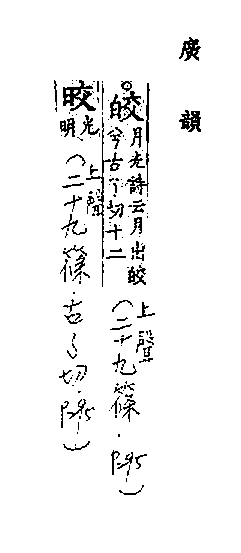 廣韻
皎月光詩云月出皎
兮古了切十二
(上聲
二十九篠.P295)
晈光
明
(上聲
二十九篠.古了切.P295)